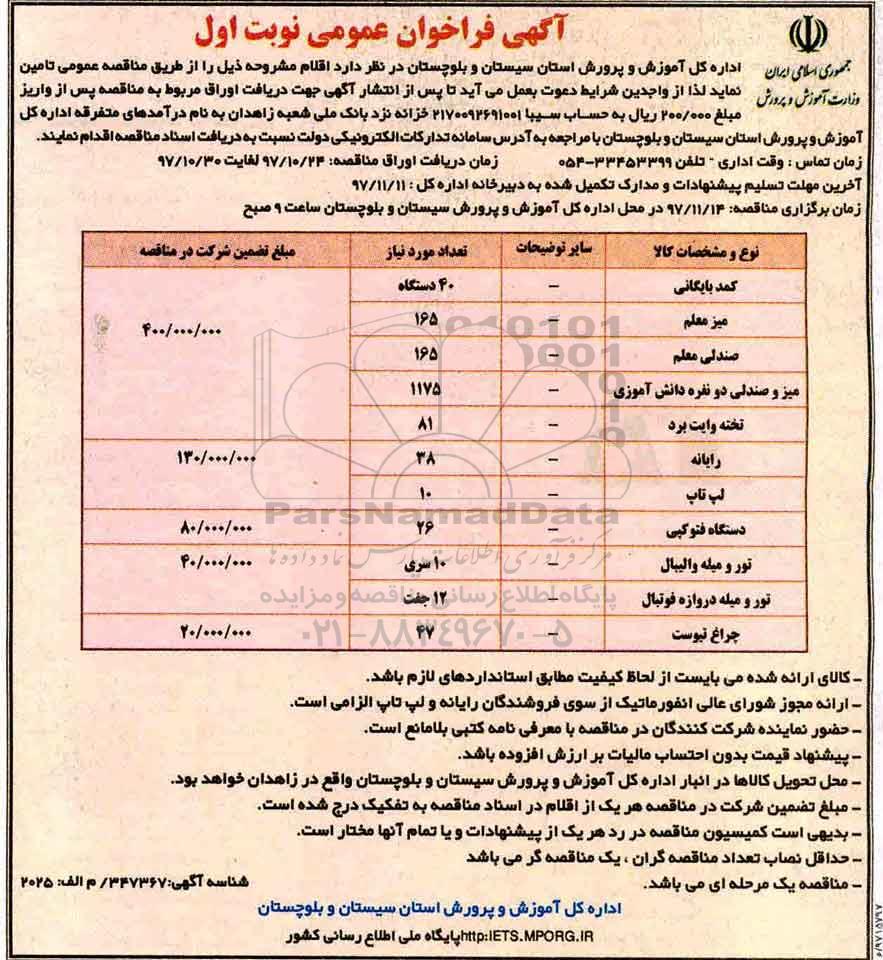 آگهی فراخوان عمومی نوبت اول
جمهوری اسلامی ایران
وزارت آموزش و پرورش
اداره کل آموزش و پرورش استان سیستان و بلوچستان در نظر دارد اقلام مشروحه ذیل را از طریق مناقصه عمومی تامین
نماید لذا از واجدین شرایط دعوت بعمل می آید تا پس از انتشار آگهی جهت دریافت اوراق مربوط به مناقصه پس از واریز
مبلغ ۲۰۰/۰۰۰ ریال به حساب سیبا ۲۱۷۰۰۹۲۶۹۱۰۰۱ خزانه نزد بانک ملی شعبه زاهدان به نام درآمدهای متفرقه اداره کل
آموزش و پرورش استان سیستان و بلوچستان با مراجعه به آدرس سامانه تدارکات الکترونیکی دولت نسبت به دریافت اسناد مناقصه اقدام نمایند.
زمان تماس : وقت اداری - تلفن ۳۳۴۵۳۳۹۹-۰۵۴ زمان دریافت اوراق مناقصه: ۹۷/۱۰/۲۴ لغایت ۹۷/۱۰/۳۰
آخرین مهلت تسلیم پیشنهادات و مدارک تکمیل شده به دبیرخانه اداره کل : ۹۷/۱۱/۱۱
زمان برگزاری مناقصه: ۹۷/۱۱/۱۴ در محل اداره کل آموزش و پرورش سیستان و بلوچستان ساعت ۹ صبح
نوع و مشخصات کالا سایر توضیحات تعداد مورد نیاز مبلغ تضمین شرکت در مناقصه
کمد بایگانی – ۴۰ دستگاه
میز معلم – ۱۶۵ ۴۰۰/۰۰۰/۰۰۰
صندلی معلم – ۱۶۵
میز و صندلی دو نفره دانش آموزی – ۱۱۷۵
تخته وایت برد – ۸۱
رایانه – ۳۸ ۱۳۰/۰۰۰/۰۰۰
لپ تاپ – ۱۰
دستگاه فتوکپی – ۲۶ ۸۰/۰۰۰/۰۰۰
تور و میله والیبال – ۱۰ سری ۴۰/۰۰۰/۰۰۰
تور و میله دروازه فوتبال – ۱۲ جفت
چراغ تیوست – ۴۷ ۲۰/۰۰۰/۰۰۰
ParsNamadData
مرکز فرآوری اطلاعات پارس نماد داده ها
پایگاه اطلاع رسانی مناقصه و مزایده
۰۲۱-۸۸۳۴۹۶۷۰-۵
- کالای ارائه شده می بایست از لحاظ کیفیت مطابق استانداردهای لازم باشد.
- ارائه مجوز شورای عالی انفورماتیک از سوی فروشندگان رایانه و لپ تاپ الزامی است.
- حضور نماینده شرکت کنندگان در مناقصه با معرفی نامه کتبی بلامانع است.
- پیشنهاد قیمت بدون احتساب مالیات بر ارزش افزوده باشد.
- محل تحویل کالاها در انبار اداره کل آموزش و پرورش سیستان و بلوچستان واقع در زاهدان خواهد بود.
- مبلغ تضمین شرکت در مناقصه هر یک از اقلام در اسناد مناقصه به تفکیک درج شده است.
- بدیهی است کمیسیون مناقصه در رد هر یک از پیشنهادات و یا تمام آنها مختار است.
- حداقل نصاب تعداد مناقصه گران ، یک مناقصه گر می باشد
- مناقصه یک مرحله ای می باشد. شناسه آگهی: ۳۴۷۳۶۷/ م الف: ۲۰۲۵
اداره کل آموزش و پرورش استان سیستان و بلوچستان
http:IETS.MPORG.IR پایگاه ملی اطلاع رسانی کشور